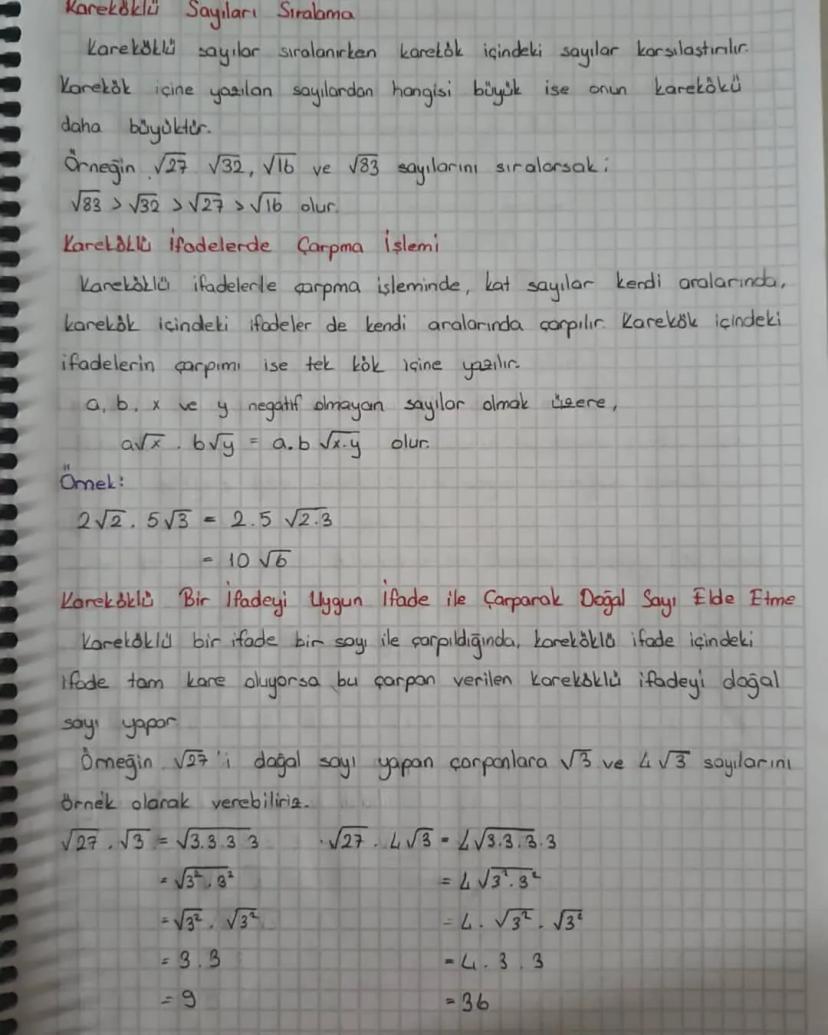 Kareköklü Sayıları Sıralama
Kareköklü sayılar sıralanırken karekök içindeki sayılar karşılaştırılır.
Karekök içine yazılan sayılardan hangisi büyük ise onun karekökü
daha büyüktür.
Örneğin √27 √32, √16 ve √83 sayılarını sıralarsak;
√83 > √32 > √27 > √16 olur.
Kareköklü İfadelerde Çarpma İşlemi
Kareköklü ifadelerle çarpma işleminde, kat sayılar kendi aralarında,
karekök içindeki ifadeler de kendi aralarında çarpılır. Karekök içindeki
ifadelerin çarpımı ise tek kök içine yazılır.
a, b, x ve y negatif olmayan sayılar olmak üzere,
a√x . b√y = a.b √x.y olur.
Örnek:
2√2 . 5√3 = 2.5 √2.3
= 10 √6
Kareköklü Bir İfadeyi Uygun İfade ile Çarparak Doğal Sayı Elde Etme
Kareköklü bir ifade bir sayı ile çarpıldığında, kareköklü ifade içindeki
ifade tam kare oluyorsa bu çarpan verilen kareköklü ifadeyi doğal
sayı yapar.
Örneğin √27'i doğal sayı yapan çarpanlara √3 ve 4√3 sayılarını
örnek olarak verebiliriz.
√27 . √3 = √3.3.3.3 √27 . 4√3 = 4√3.3.3.3
= √3².3² = 4√3².3²
= √3² . √3² = 4 . √3² . √3²
= 3.3 = 4.3.3
= 9 = 36